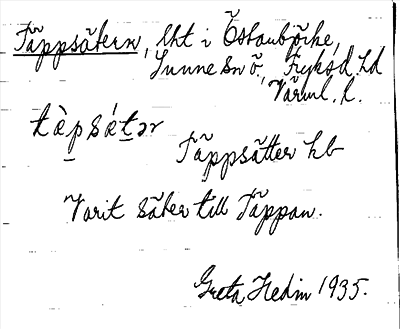 Täppsätern, lht i Östanbjörke,
Sunne sn ö., Fryksd. hd
Värml. l.
tæ̀psætər
Täppsätter hb
Varit säter till Täppan.
Greta Hedin 1935.